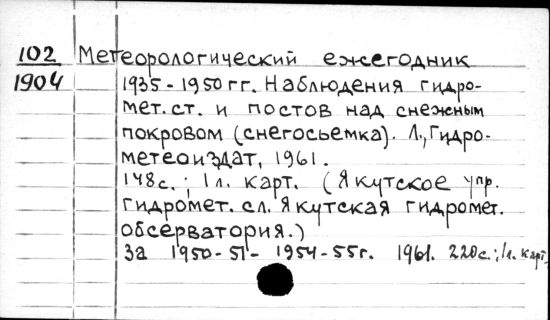 102 Метеорологический ежегодник
1904 1935-1950 гг. Наблюдения гидро-
мет. ст. и постов над снежным
покровом (снегосьемка). Л., Гидро-
метеоиздат, 1961.
148с.; 1 л. карт. (Якутское упр.
гидромет. сл. Якутская гидромет.
обсерватория.)
За 1950-51- 1954-55г. 1961. 220с.; 1л. карт.